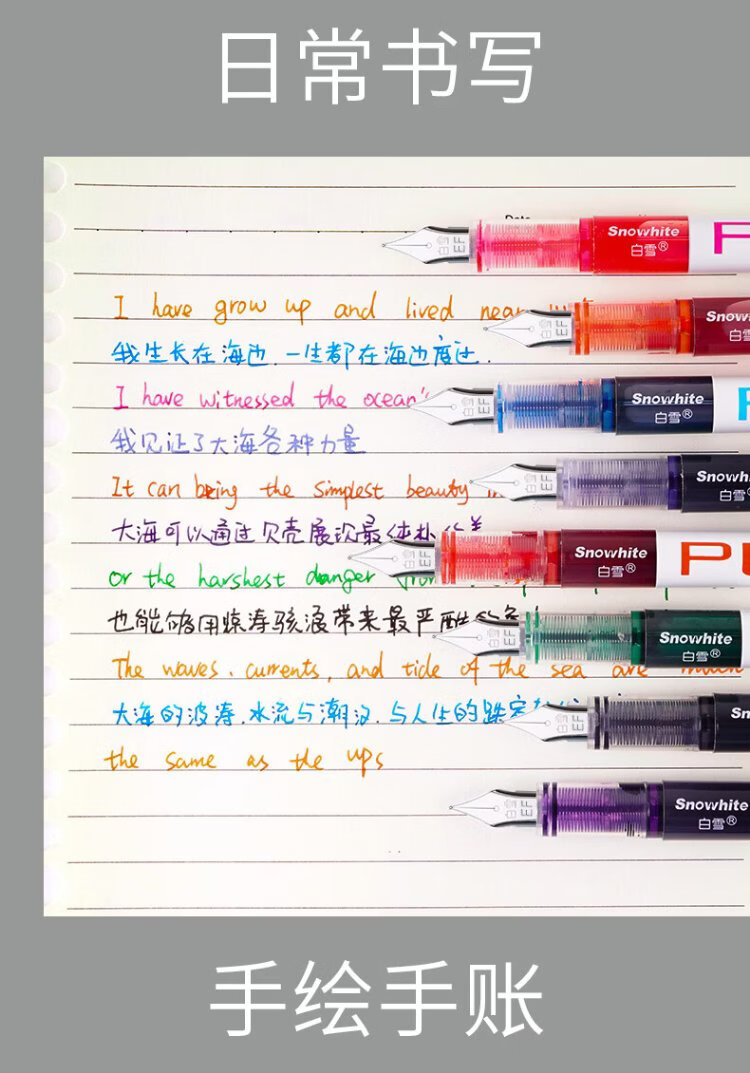 日常书写
Date
EF
Snowhite
白雪®
I have grow up and lived near
EF
Snow
白雪
我生长在海边.一生都在海边度过.
I have witnessed the ocean's
EF
Snowhite
白雪®
我见证了大海各种力量
EF
Snowh
白雪®
It can being the simplest beauty
大海可以通过贝壳展沉最体朴
EF
Snowhite
白雪®
or the harshest danger
也能够用惊涛骇浪带来最严酷
EF
Snowhite
白雪®
The waves. currents, and tide of the sea are much
大海的波涛.水流与潮汐.与人生的跌宕
EF
Sn
白
the same as the ups
EF
Snowhite
白雪®
手绘手账